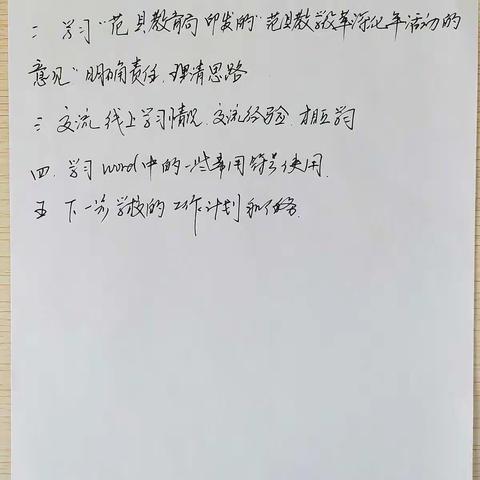 二 学习"范县教育局印发的"范县教学改革深化年活动的
意见"明确责任.理清思路
三 交流线上学习情况.交流经验.相互学习
四.学习word中的一些常用符号使用.
五 下一步学校的工作计划和